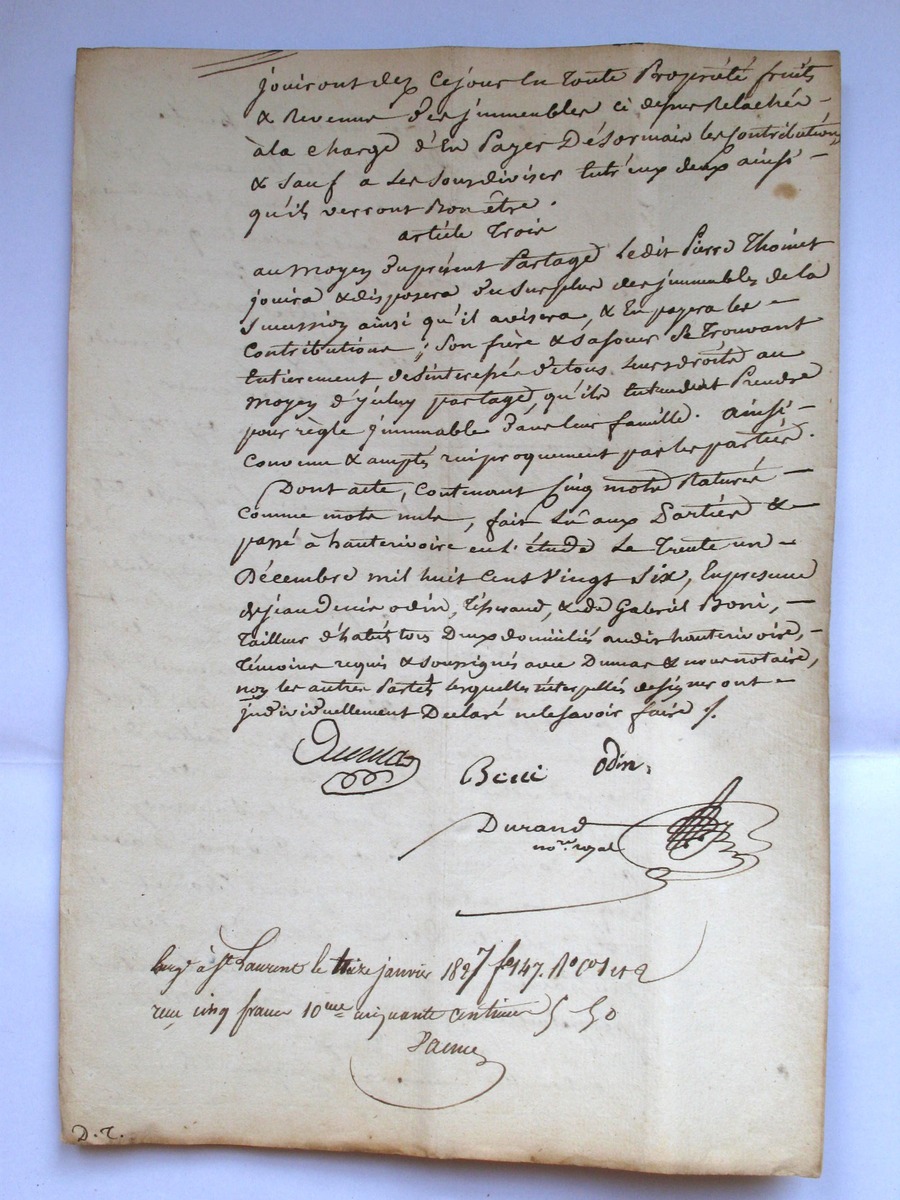 jouiront dez ce jour En toute Propriété fruits
& Revenus des jmmeubles ci dessus Relachés -
à la charge d'En Payer Désormais les Contributions
& sauf a les sousdiviser Entr'eux deux ainsi -
qu'ils verront Bon être.
article Trois
au moyen du présent Partage Ledit Pierre Thoinet
jouira & disposera du surplus des jmmeubles de la
succession ainsi qu'il avisera, & En payera les -
Contributions; son frère & sa soeur se Trouvant
Entierement desinteressés de tous leurs droits au
moyen d'jcelui partage qu'ils Entendent Prendre
pour règle jmmuable dans leur famille. ainsi -
Convenu & accepté reciproquement par les parties.
Dont acte, Contenant Cinq mots Raturés -
comme mots nuls, fait Lû aux Parties & -
passé à hauterivoire en l'étude Le Trente un -
Décembre mil huit cent Vingt Six, En presence
de jean denis odin, Tisserand, & de Gabriel Boni, -
Tailleur d'habits tous Deux domiciliés audit hauterivoire, -
Témoins requis & soussignés avec Dumas & nous notaire,
non les autres Parties lesquelles interpellés de signer ont -
jndividuellement Declaré ne le savoir faire ./.
Dumas
Boni odin,
Durand
no.re royal
Enrg à St Laurent le treize janvier 1827 fo 147. Ro Cos 1 et 2
reçu cinq francs 10me cinquante centimes 5-50
D.T.